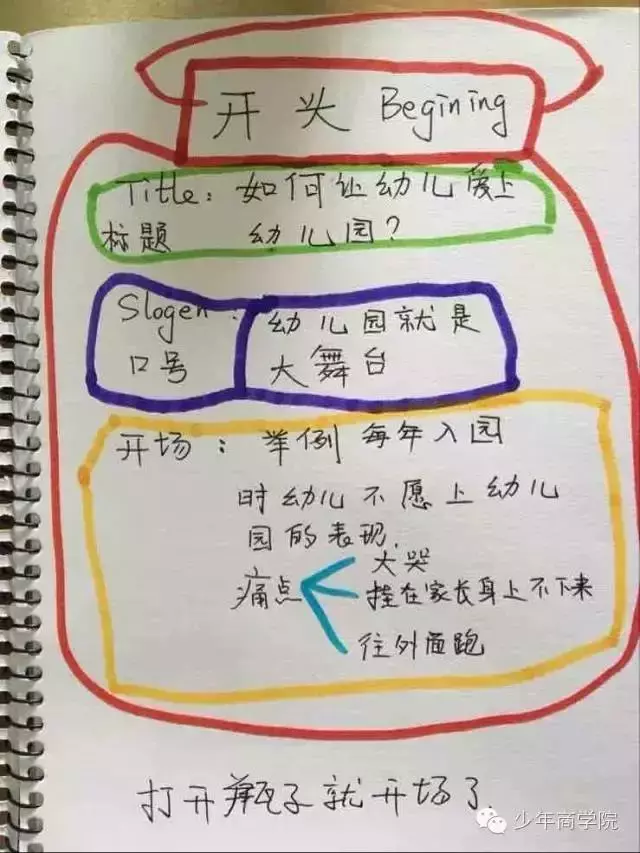 开头 Begining
Title: 如何让幼儿爱上
标题 幼儿园?
Slogen:
口号
幼儿园就是
大舞台
开场: 举例 每年入园
时幼儿不愿上幼儿
园的表现.
痛点
大哭
挂在家长身上不下来
往外面跑
打开瓶子就开场了
少年商学院